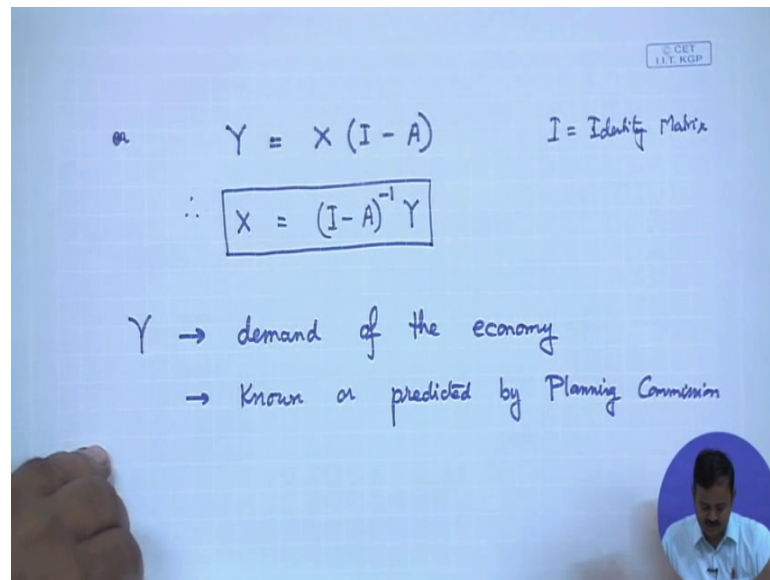 © CET
I.I.T. KGP
or Y = X (I - A) I = Identity Matrix
∴ X = (I - A)⁻¹ Y
Y → demand of the economy
→ Known or predicted by Planning Commission